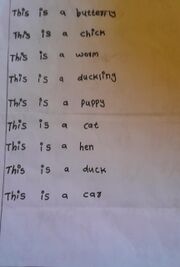 This is a butterfly
This is a chick
This is a worm
This is a duckling
This is a puppy
This is a cat
This is a hen
This is a duck
This is a